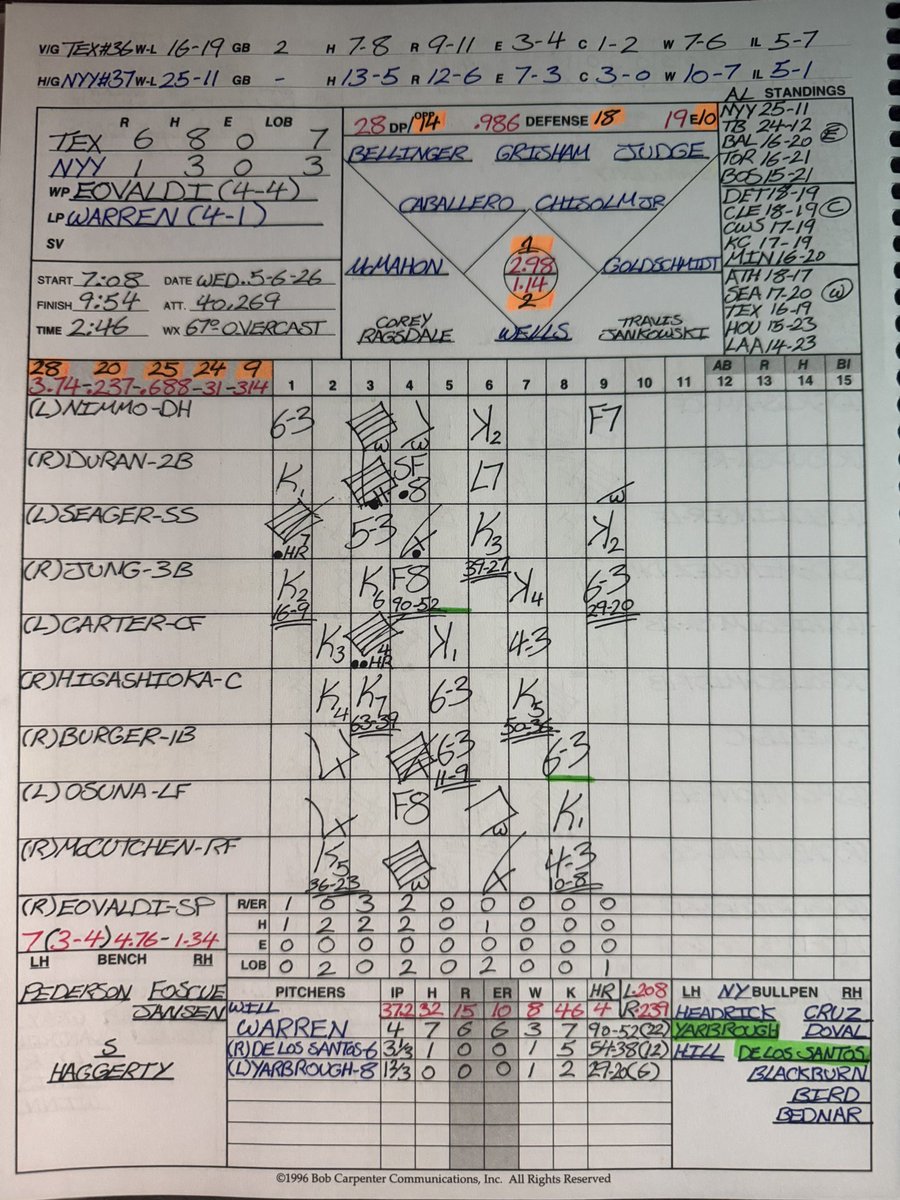 V/G TEX#36 W-L 16-19 GB 2 H 7-8 R 9-11 E 3-4 C 1-2 W 7-6 IL 5-7
H/G NYY#37 W-L 25-11 GB - H 13-5 R 12-6 E 7-3 C 3-0 W 10-7 IL 5-1
R H E LOB
TEX 6 8 0 7
NYY 1 3 0 3
WP EOVALDI (4-4)
LP WARREN (4-1)
SV
START 7:08 DATE WED. 5-6-26
FINISH 9:54 ATT. 40,269
TIME 2:46 WX 67° OVERCAST
28 DP/OPP 14 .986 DEFENSE 18 19 E/10
BELLINGER GRISHAM JUDGE
CABALLERO CHISOLM JR
McMAHON GOLDSCHMIDT
1
2.98
1.14
2
COREY RAGSDALE WELLS TRAVIS JANKOWSKI
AL STANDINGS
NYY 25-11
TB 24-12
BAL 16-20 E
TOR 16-21
BOS 15-21
DET 18-19
CLE 18-19 C
CWS 17-19
KC 17-19
MIN 16-20
ATH 18-17
SEA 17-20 W
TEX 16-19
HOU 15-23
LAA 14-23
28 20 25 24 9
3.74-.237-.688-31-314
1 2 3 4 5 6 7 8 9 10 11 12 13 14 15
AB R H BI
(L) NIMMO-DH 6-3 W W K2 F7
(R) DURAN-2B K1 SF8 L7 W
(L) SEAGER-SS 7 HR 5-3 K3 K2
(R) JUNG-3B K2 16-9 K6 F8 90-52 39-27 K4 6-3 29-20
(L) CARTER-CF K3 4 HR K1 4-3
(R) HIGASHIOKA-C K4 K7 63-39 6-3 K5 50-36
(R) BURGER-1B 6-3 11-9 6-3
(L) OSUNA-LF F8 W K1
(R) McCUTCHEN-RF K5 36-23 W 4-3 10-8
(R) EOVALDI-SP
7 (3-4) 4.76-1.34
R/ER 1 0 3 2 0 0 0 0 0
H 1 2 2 2 0 1 0 0 0
E 0 0 0 0 0 0 0 0 0
LOB 0 2 0 2 0 2 0 0 1
LH BENCH RH
PEDERSON FOSCUE
JANSEN
S
HAGGERTY
PITCHERS IP H R ER W K HR L.208
WILL 37.2 32 15 10 8 46 4 R.239
WARREN 4 7 6 6 3 7 90-52(22)
(R) DE LOS SANTOS-6 3 1/3 1 0 0 1 5 54-38(12)
(L) YARBROUGH-8 1 2/3 0 0 0 1 2 29-20(6)
LH NY BULLPEN RH
HEADRICK CRUZ
YARBROUGH DOVAL
HILL DE LOS SANTOS
BLACKBURN
BIRD
BEDNAR
©1996 Bob Carpenter Communications, Inc. All Rights Reserved